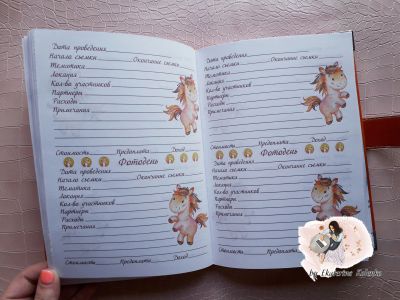 Дата проведения
Начало съемки Окончание съемки
Тематика
Локация
Кол-во участников
Партнеры
Расходы
Примечания
Стоимость Предоплата Доход
Фотодень
Дата проведения
Начало съемки Окончание съемки
Тематика
Локация
Кол-во участников
Партнеры
Расходы
Примечания
Стоимость Предоплата Доход
Дата проведения
Начало съемки Окончание съемки
Тематика
Локация
Кол-во участников
Партнеры
Расходы
Примечания
Стоимость Предоплата Доход
Фотодень
Дата проведения
Начало съемки Окончание съемки
Тематика
Локация
Кол-во участников
Партнеры
Расходы
Примечания
Стоимость Предоплата
by Ekaterina